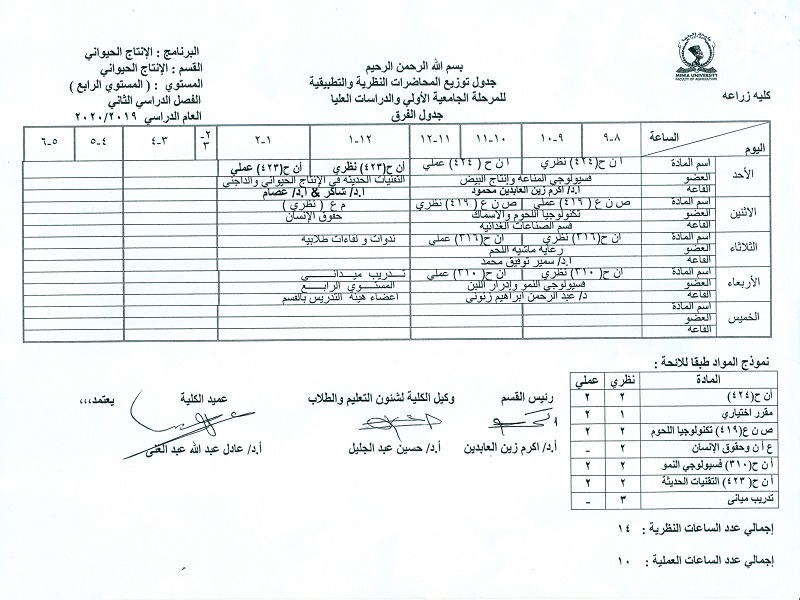 MINIA UNIVERSITY
FACULTY OF AGRICULTURE
كليه زراعه
بسم الله الرحمن الرحيم
جدول توزيع المحاضرات النظرية والتطبيقية
للمرحلة الجامعية الأولي والدراسات العليا
جدول الفرق
البرنامج : الإنتاج الحيواني
القسم : الإنتاج الحيواني
المستوي : ( المستوي الرابع )
الفصل الدراسي الثاني
العام الدراسي ٢٠٢٠/٢٠١٩
الساعة
اليوم
٨-٩ ٩-١٠ ١٠-١١ ١١-١٢ ١٢-١ ١-٢ ٢-٣ ٣-٤ ٤-٥ ٥-٦
الأحد
اسم المادة أن ح(٤٢٤) نظري أن ح( ٤٢٤) عملي أن ح(٤٢٣) نظري أن ح(٤٢٣) عملي
العضو فسيولوجي المناعه وإنتاج البيض التقنيات الحديثه في الإنتاج الحيواني والداجني
القاعه أ.د/ أكرم زين العابدين محمود أ.د/ شاكر & أ.د/ عصام
الاثنين
اسم المادة ص ن ع (٤١٦) عملي ص ن ع (٤١٦) نظري م ع ( نظري )
العضو تكنولوجيا اللحوم والأسماك حقوق الإنسان
القاعه قسم الصناعات الغذائيه
الثلاثاء
اسم المادة أن ح(٣١٦) نظري أن ح(٣١٦) عملي ندوات و لقاءات طلابيه
العضو رعايه ماشيه اللحم
القاعه أ.د/ سمير توفيق محمد
الأربعاء
اسم المادة أن ح(٣١٠) نظري أن ح(٣١٠) عملي تدريب ميداني
العضو فسيولوجي النمو وإدرار اللبن المستوي الرابع
القاعه د/ عبد الرحمن ابراهيم زنوني اعضاء هيئة التدريس بالقسم
الخميس
اسم المادة
العضو
القاعه
نموذج المواد طبقا للائحة :
المادة نظري عملي
أن ح(٤٢٤) ٢ ٢
مقرر اختياري ١ ٢
ص ن ع(٤١٩) تكنولوجيا اللحوم ٢ ٢
ع أ ن وحقوق الإنسان ٢ -
أن ح(٣١٠) فسيولوجي النمو ٢ ٢
أ ن ح( ٤٢٣) التقنيات الحديثة ٢ ٢
تدريب مياني ٣ -
إجمالي عدد الساعات النظرية : ١٤
إجمالي عدد الساعات العملية : ١٠
رئيس القسم
أ.د/ أكرم زين العابدين
وكيل الكلية لشئون التعليم والطلاب
أ.د/ حسين عبد الجليل
يعتمد،،،، عميد الكلية
أ.د/ عادل عبد الله عبد الغنى